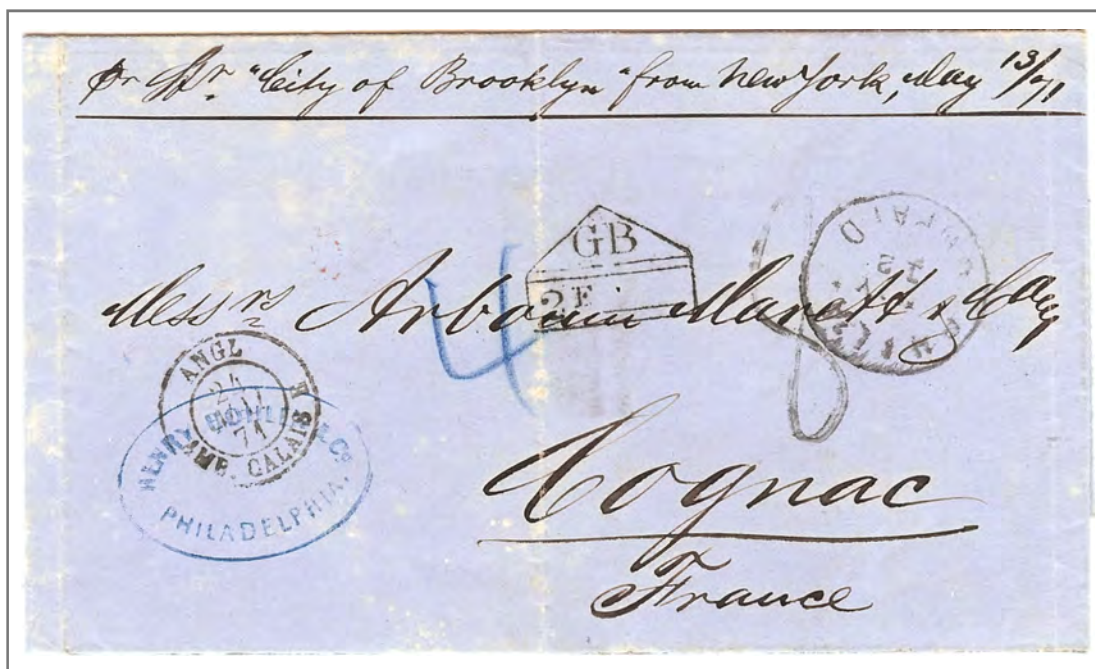 pr Str. "City of Brooklyn" from New York, May 13/71
GB
2F
UNPAID
4
8
Messrs Arbouin Marett & Co
ANGL
24
71
AMB. CALAIS
HENRY & Co
PHILADELPHIA.
Cognac
France